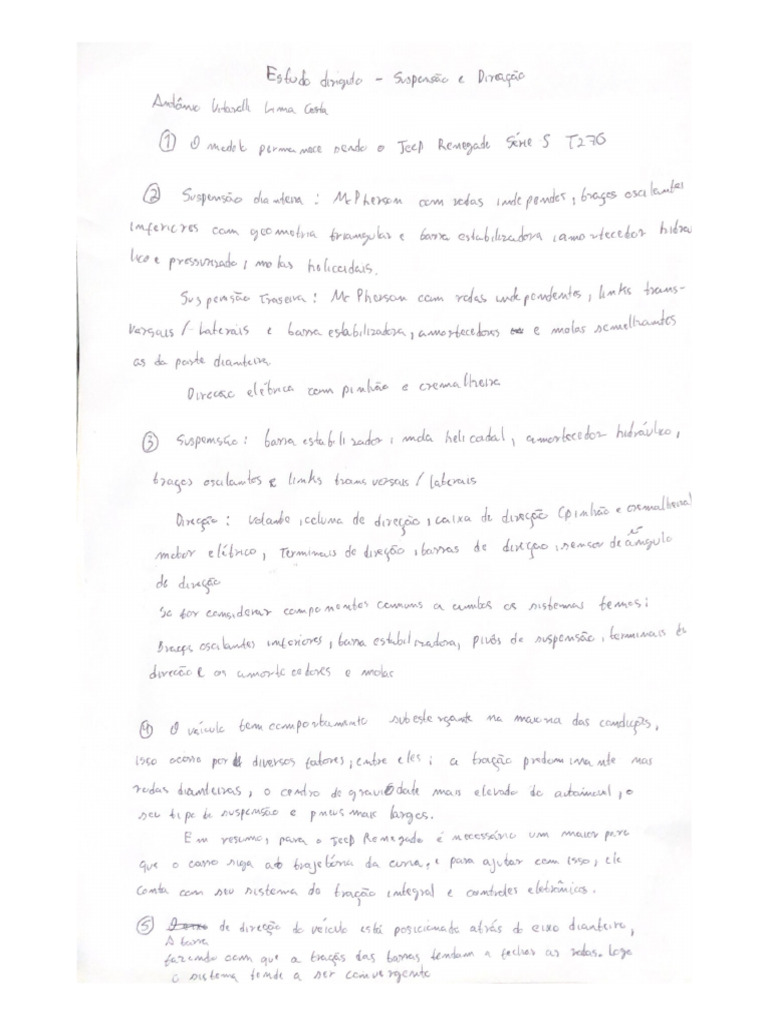 Estudo dirigido - Suspensão e Direção
Antônio Lima Costa
① O modelo permanece sendo o Jeep Renegade Série S T270
② Suspensão dianteira: McPherson com rodas independes, braços oscilantes
inferiores com geometria triangular e barra estabilizadora, amortecedor hidráu
lico e pressurizado, molas helicoidais.
Suspensão Traseira: Mc Pherson com rodas independentes, links trans-
versais/laterais e barra estabilizadora, amortecedores e molas semelhantes
as da parte dianteira
Direcao elétrica com pinhão e cremalheira
③ Suspensão: barra estabilizador, mola helicoidal, amortecedor hidráulico,
braços oscilantes e links transversais/laterais
Direção: volante, coluna de direção, caixa de direção (pinhão e cremalheira)
motor elétrico, Terminais de direção, barras de direção, sensor de ângulo
de direção
Se for considerar componentes comuns a ambos os sistemas temos:
Braços oscilantes inferiores, barra estabilizadora, pivôs de suspensão, terminais de
direcão e os amortecedores e molas
④ O veículo tem comportamento subesterçante na maioria das condições,
isso ocorre por diversos fatores, entre eles: a tração predominante nas
rodas dianteiras, o centro de gravidade mais elevado do automóvel, o
seu tipo de suspensão e pneus mais largos.
Em resumo, para o Jeep Renegade é necessário um maior para
que o carro siga a trajetória da curva, e para ajudar com isso, ele
conta com seu sistema de tração integral e controles eletrônicos.
⑤ A barra de direção do veículo está posicionado atrás do eixo dianteiro,
fazendo com que a tração das barras tendam a fechar as rodas. Logo
o sistema tende a ser convergente